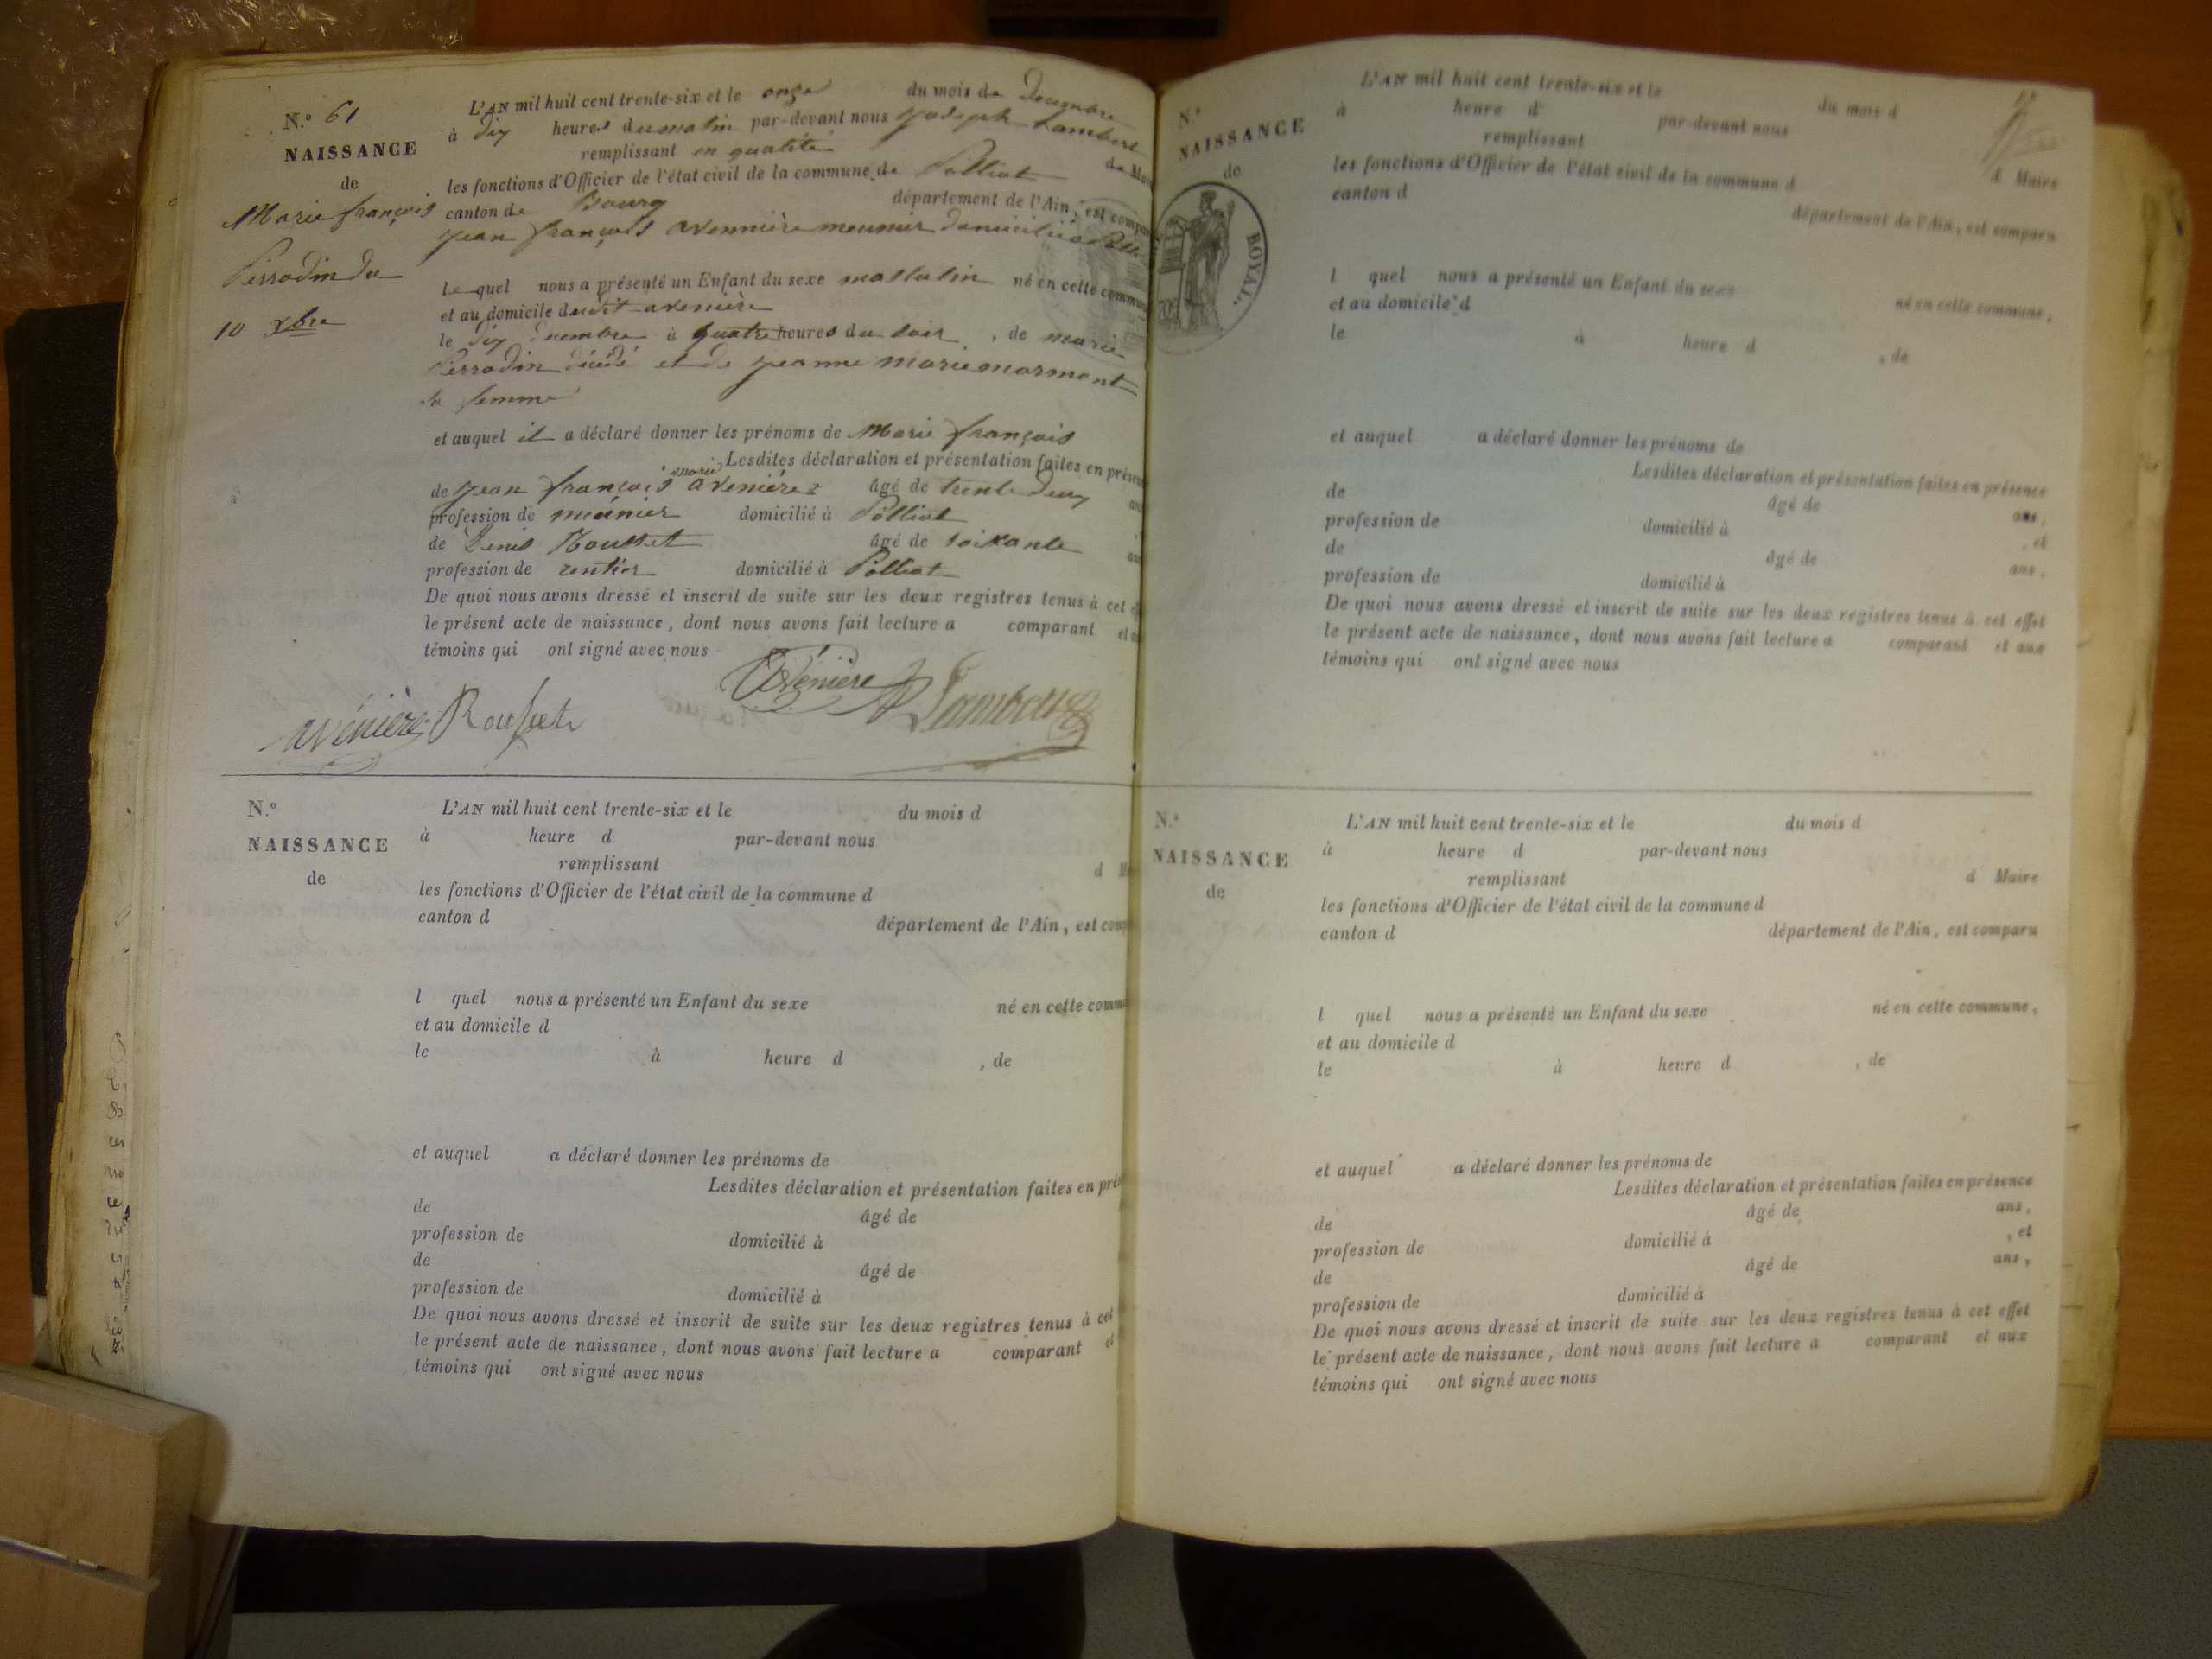 N.º 61
NAISSANCE
de
Marie françois
Perrodin du
10 xbre
L'AN mil huit cent trente-six et le onze du mois de decembre
à dix heures du matin par-devant nous Joseph Lambert
remplissant en qualité de Mai
les fonctions d'Officier de l'état civil de la commune de Polliat
canton de Bourg département de l'Ain, est compar
jean françois avennière meunier domicilié à Polli
le quel nous a présenté un Enfant du sexe masculin né en cette commun
et au domicile dudit avenière
le dix decembre à quatre heures du soir, de marie
Perrodin décédé et de jeanne marie marmont
sa femme
et auquel il a déclaré donner les prénoms de Marie françois
Lesdites déclaration et présentation faites en présen
de jean françois marie avenière âgé de trente deux ans
profession de meunier domicilié à Polliat
de Denis Rousset âgé de soixante ans
profession de rentier domicilié à Polliat
De quoi nous avons dressé et inscrit de suite sur les deux registres tenus à cet
le présent acte de naissance, dont nous avons fait lecture a comparant et
témoins qui ont signé avec nous
avénière Rousset Avénière Lambert
N.º
NAISSANCE
de
L'AN mil huit cent trente-six et le du mois d
à heure d par-devant nous
remplissant d M
les fonctions d'Officier de l'état civil de la commune d
canton d département de l'Ain, est comp
l quel nous a présenté un Enfant du sexe né en cette commu
et au domicile d
le à heure d , de
et auquel a déclaré donner les prénoms de
Lesdites déclaration et présentation faites en prés
de âgé de
profession de domicilié à
de âgé de
profession de domicilié à
De quoi nous avons dressé et inscrit de suite sur les deux registres tenus à cet
le présent acte de naissance, dont nous avons fait lecture a comparant et
témoins qui ont signé avec nous
N.º
NAISSANCE
de
ROYAL.
L'AN mil huit cent trente-six et le du mois d
à heure d par-devant nous
remplissant d Maire
les fonctions d'Officier de l'état civil de la commune d
canton d département de l'Ain, est comparu
l quel nous a présenté un Enfant du sexe né en cette commune,
et au domicile d
le à heure d , de
et auquel a déclaré donner les prénoms de
Lesdites déclaration et présentation faites en présence
de âgé de ans,
profession de domicilié à , et
de âgé de ans,
profession de domicilié à
De quoi nous avons dressé et inscrit de suite sur les deux registres tenus à cet effet
le présent acte de naissance, dont nous avons fait lecture a comparant et aux
témoins qui ont signé avec nous
N.º
NAISSANCE
de
L'AN mil huit cent trente-six et le du mois d
à heure d par-devant nous
remplissant d Maire
les fonctions d'Officier de l'état civil de la commune d
canton d département de l'Ain, est comparu
l quel nous a présenté un Enfant du sexe né en cette commune,
et au domicile d
le à heure d , de
et auquel a déclaré donner les prénoms de
Lesdites déclaration et présentation faites en présence
de âgé de ans,
profession de domicilié à , et
de âgé de ans,
profession de domicilié à
De quoi nous avons dressé et inscrit de suite sur les deux registres tenus à cet effet
le présent acte de naissance, dont nous avons fait lecture a comparant et aux
témoins qui ont signé avec nous